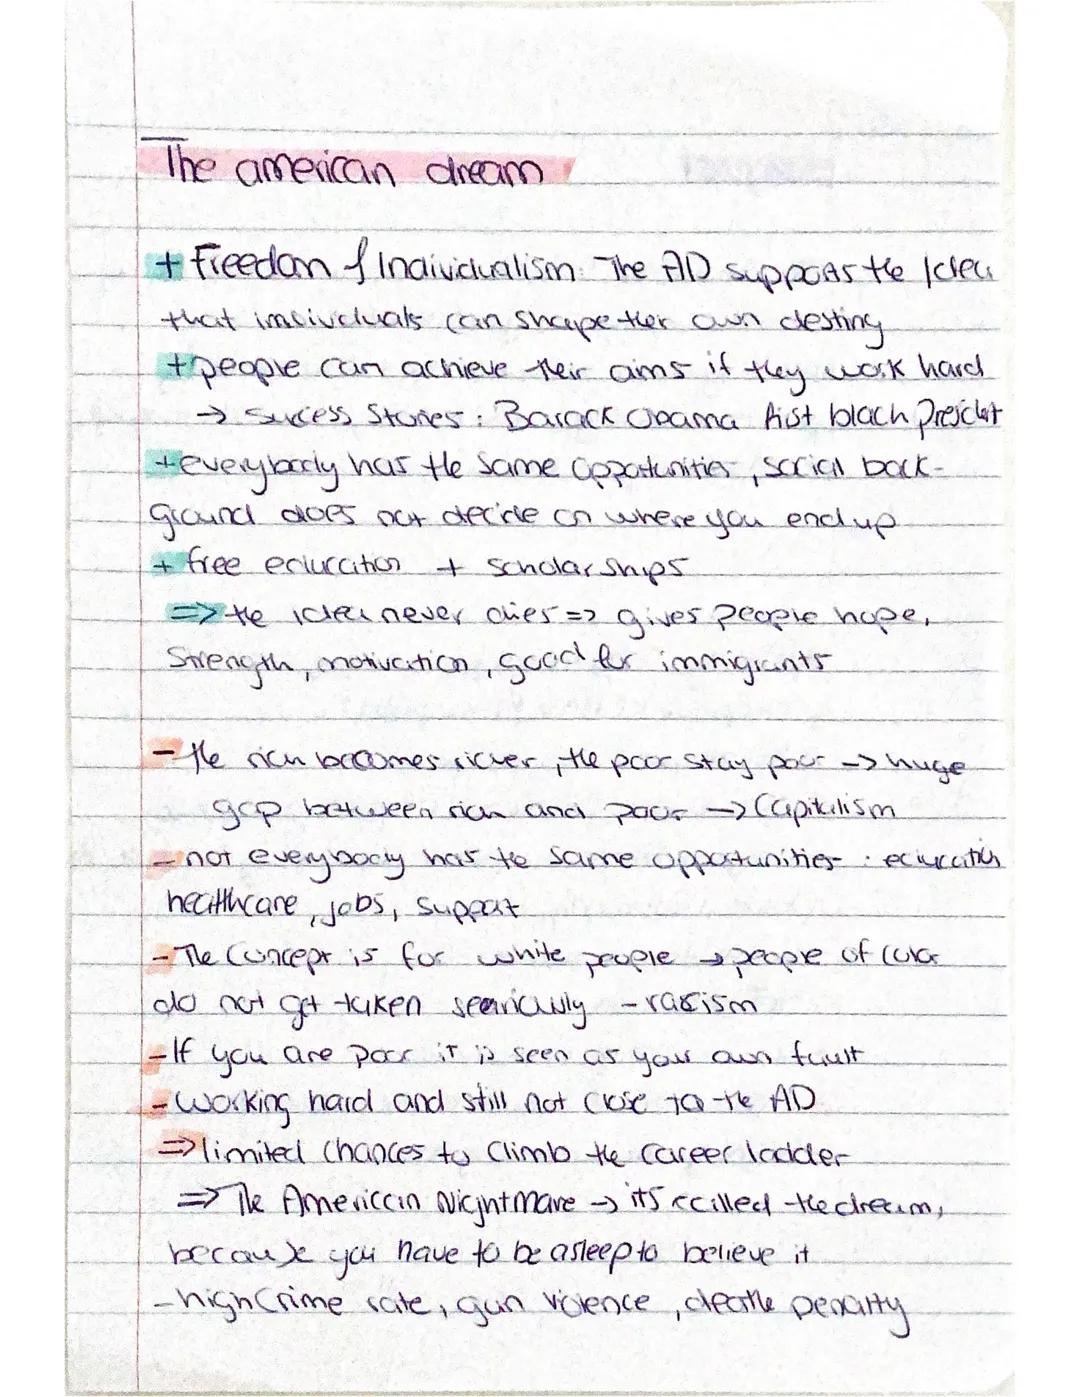 The american dream
+ Freedom & Individualism: The AD supports the Idea
that individuals can shape their own destiny
+ people can achieve their aims if they work hard
→ Success Stories: Barack Obama first black President
+ everybody has the same opportunities, social back-
ground does not decide on where you end up
+ free education + scholarships
=> the idea never dies => gives people hope,
Strength, motivation, good for immigrants
- the rich becomes richer, the poor stay poor -> huge
gap between rich and poor -> Capitalism
- not everybody has the same opportunities: education
healthcare, jobs, support
- The Concept is for white people → people of color
do not get taken seariously - racism
- If you are poor it is seen as your own fault
- Working hard and still not close to the AD
=> limited Chances to Climb the career ladder
=> The American Nightmare -> its called the dream,
because you have to be asleep to believe it
- high Crime rate, gun violence, death penalty